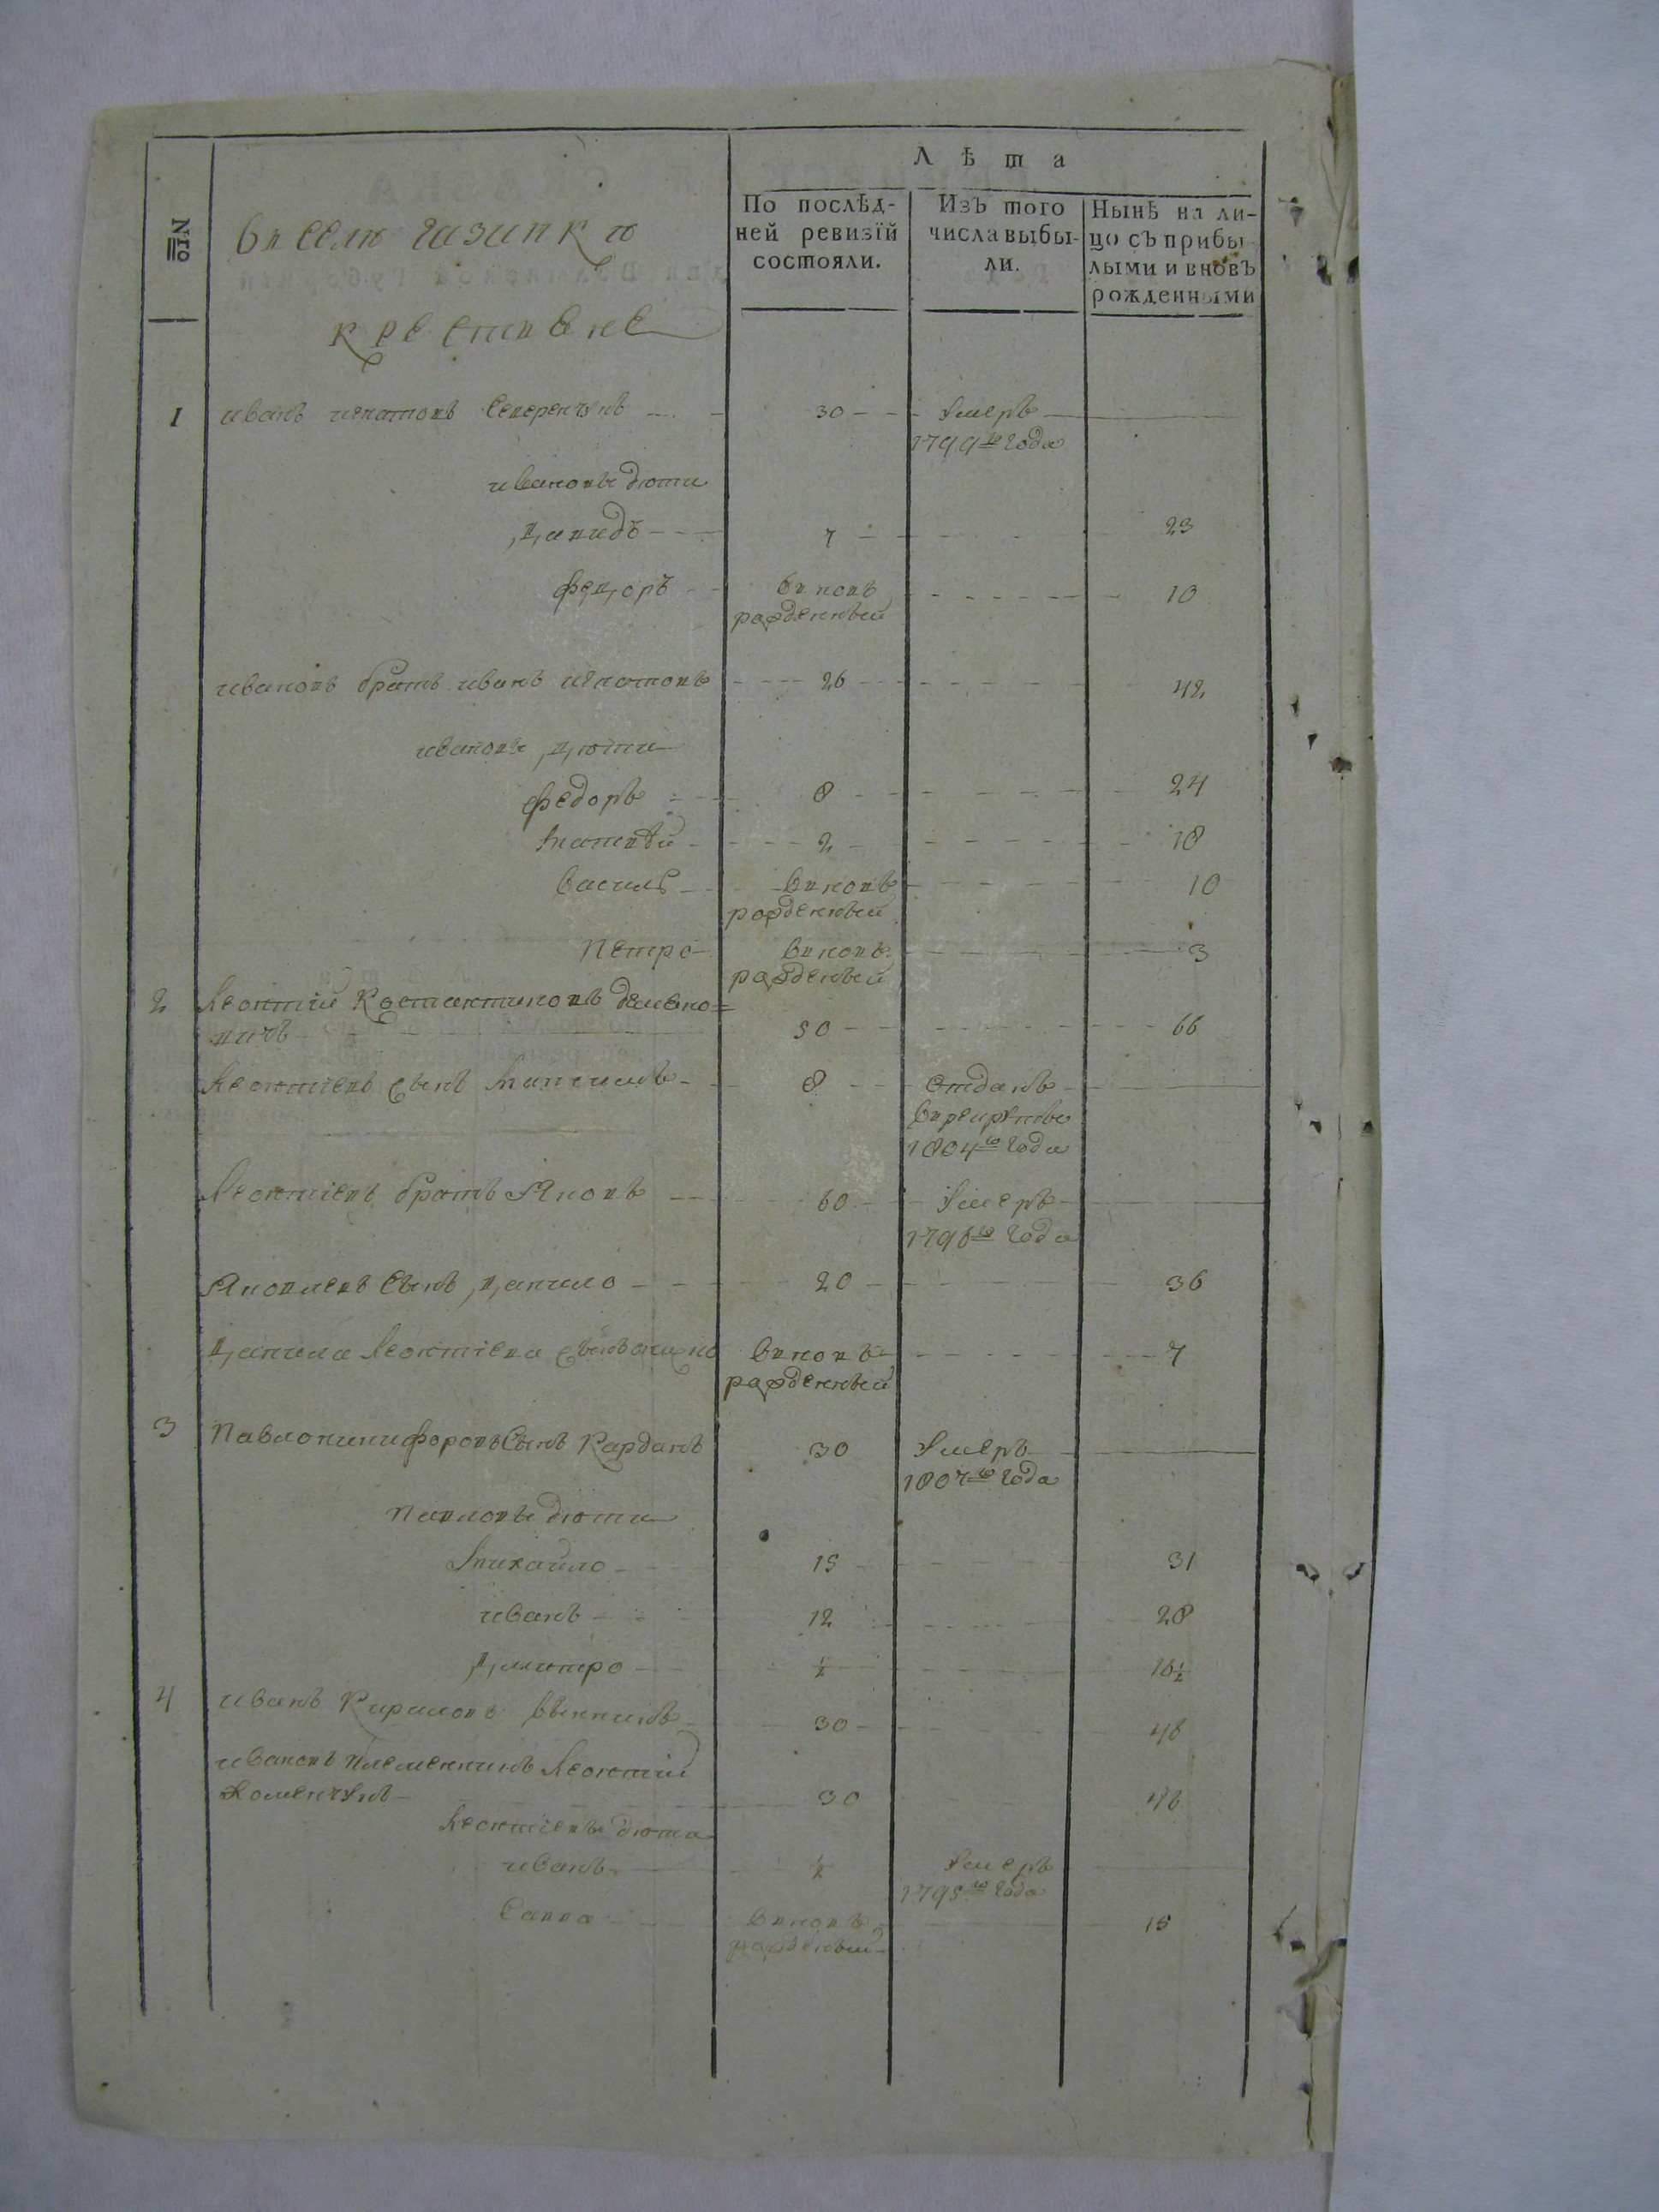 №
Лѣта
По послѣд-
ней ревизїй
состояли.
Изъ того
числа выбы-
ли.
Нынѣ на ли-
цо съ прибы
лыми и вновь
рожденными
Въ селѣ
крестьяне
1 иванъ игнатовъ 30 умеръ
1799го года
ивановы дѣти
Давидъ 7 23
Федоръ вновь 10
рожденный
ивановъ братъ иванъ игнатовъ 26 42
ивановы дѣти
федоръ 8 24
матвѣй 2 18
василь вновь 10
рожденный
Петро вновь 3
рожденый
2 Леонтий Костантиновъ
50 66
Леонтиевъ сынъ максимъ 8 отданъ
в рекруты
1804го года
Леонтиевъ братъ Яковъ 60 умеръ
1796го года
Яковлевъ сынъ Данило 20 36
Данила Леонтиева сынъ вновь 7
рожденный
3 Павло никифоровъ сынъ Карданъ 30 умеръ
1807го года
Павловы дѣти
михайло 15 31
иванъ 12 28
Дмитро ½ 16½
4 иванъ Кириловъ 30 46
ивановъ племенникъ Леонтий
30 46
Леонтиевы дѣти
иванъ ½ умеръ
1795го года
Савва вновь 15
рожденый